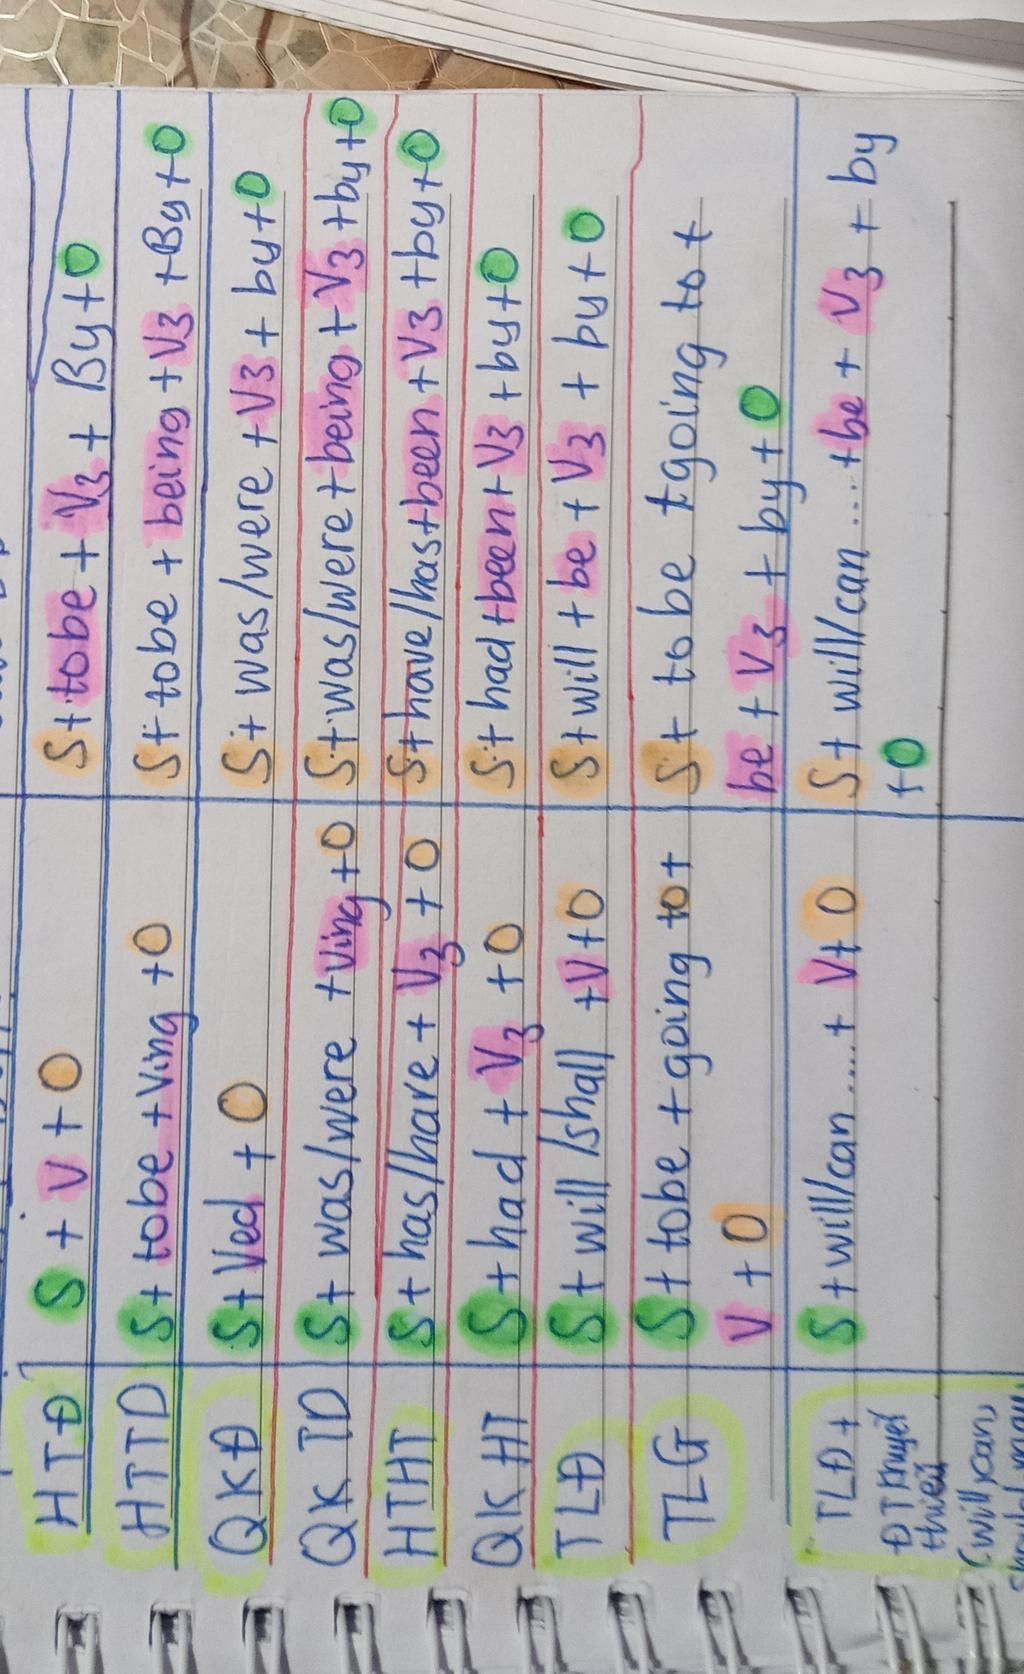 HTĐ
S + V + O
S + tobe + V3 + By + O
HTTD
S + tobe + Ving + O
S + tobe + being + V3 + By + O
QKĐ
S + Ved + O
S + was/were + V3 + by + O
QK TD
S + was/were + Ving + O
S + was/were + being + V3 + by + O
HTHT
S + has/have + V3 + O
S + have/has + been + V3 + by + O
QK HT
S + had + V3 + O
S + had + been + V3 + by + O
TLĐ
S + will /shall + V + O
S + will + be + V3 + by + O
TLG
S + tobe + going to +
V + O
S + to be + going to +
be + V3 + by + O
TLĐ +
ĐT khuyết
thiếu
(will, can,
S + will/can .... + V + O
S + will/can ... + be + V3 + by
+ O